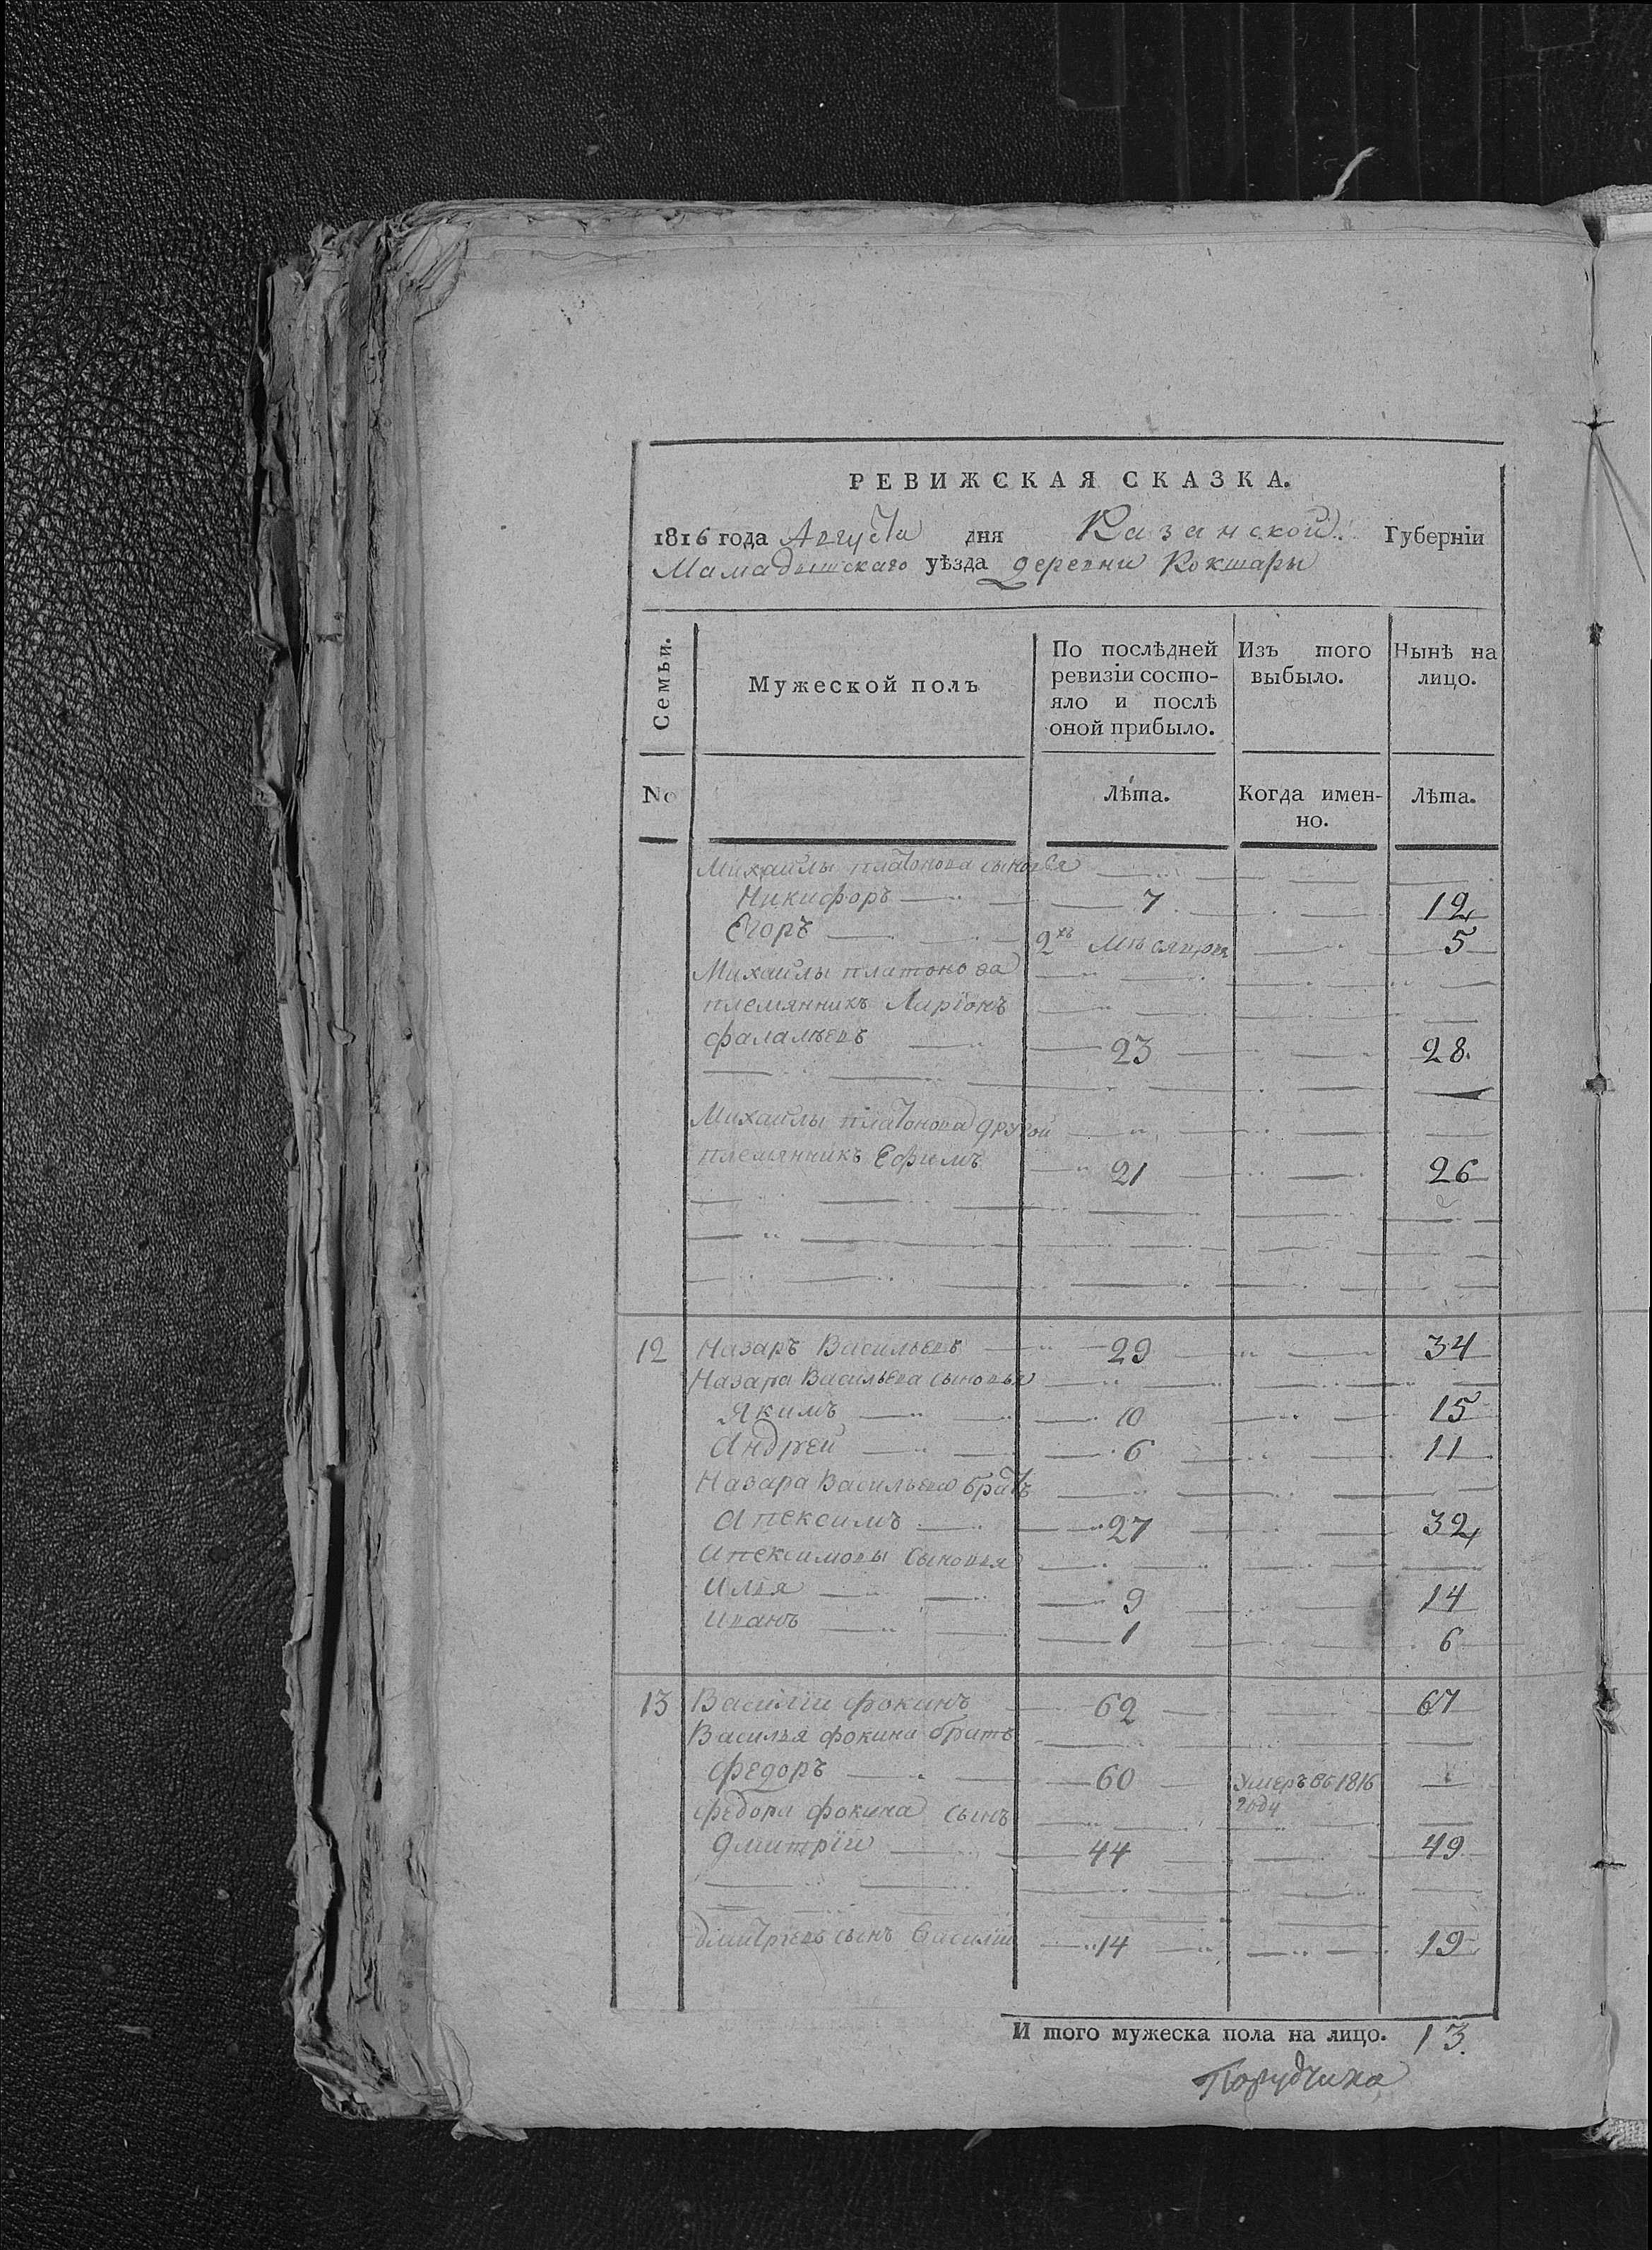 РЕВИЖСКАЯ СКАЗКА.
1816 года Августа дня Казанской Губерніи
Мамадышскаго уѣзда деревни Кокшары
Семьи.
Мужеской полъ
По послѣдней ревизіи состо-
яло и послѣ
оной прибыло.
Изъ того
выбыло.
Нынѣ на
лицо.
No
Лѣта.
Когда имен-
но.
Лѣта.
Михаилы платонова сыновья
Никифоръ 7 12
Егоръ 2хъ мѣсяцовъ 5
Михаилы платонова
племянникъ Ларіонъ
фалалѣевъ 23 28.
Михаилы платонова другой
племянникъ Ефимъ 21 26
12 Назаръ Васильевъ 29 34
Назара Васильева сыновья
Якимъ 10 15
Андрей 6 11
Назара Васильева братъ
Апексимъ 27 32
Апексимовы сыновья
Илья 9 14
Иванъ 1 6
13 Василіи фокинъ 62 67
Василья фокина братъ
федоръ 60 Умеръ въ 1816
году
федора фокина сынъ
Дмитріи 44 49
дмитріевъ сынъ Василіи 14 19
И того мужеска пола на лицо. 13.